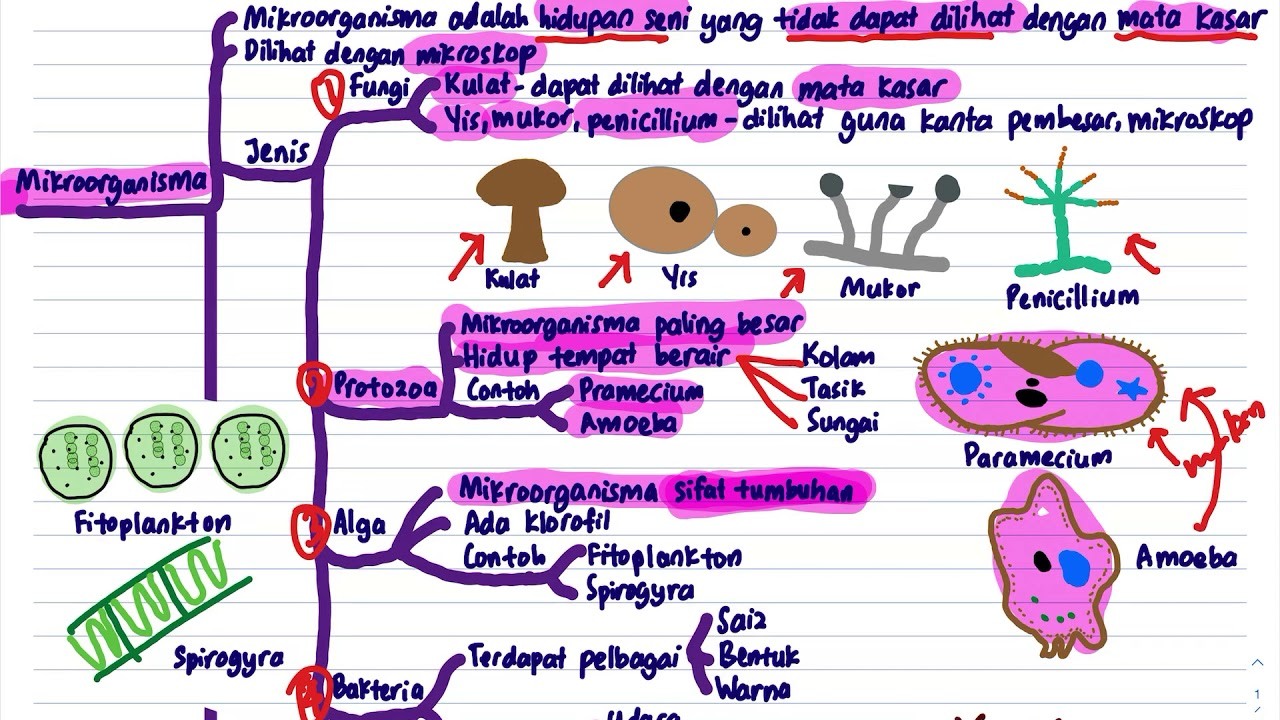 Mikroorganisma adalah hidupan seni yang tidak dapat dilihat dengan mata kasar
Dilihat dengan mikroskop
Mikroorganisma
Jenis
1 Fungi
Kulat - dapat dilihat dengan mata kasar
Yis, mukor, penicillium - dilihat guna kanta pembesar, mikroskop
Kulat
Yis
Mukor
Penicillium
Protozoa
Mikroorganisma paling besar
Hidup tempat berair
Kolam
Tasik
Sungai
Contoh
Pramecium
Amoeba
Paramecium
Amoeba
Alga
Mikroorganisma sifat tumbuhan
Ada klorofil
Contoh
Fitoplankton
Spirogyra
Fitoplankton
Spirogyra
Bakteria
Terdapat pelbagai
Saiz
Bentuk
Warna
Udara
1